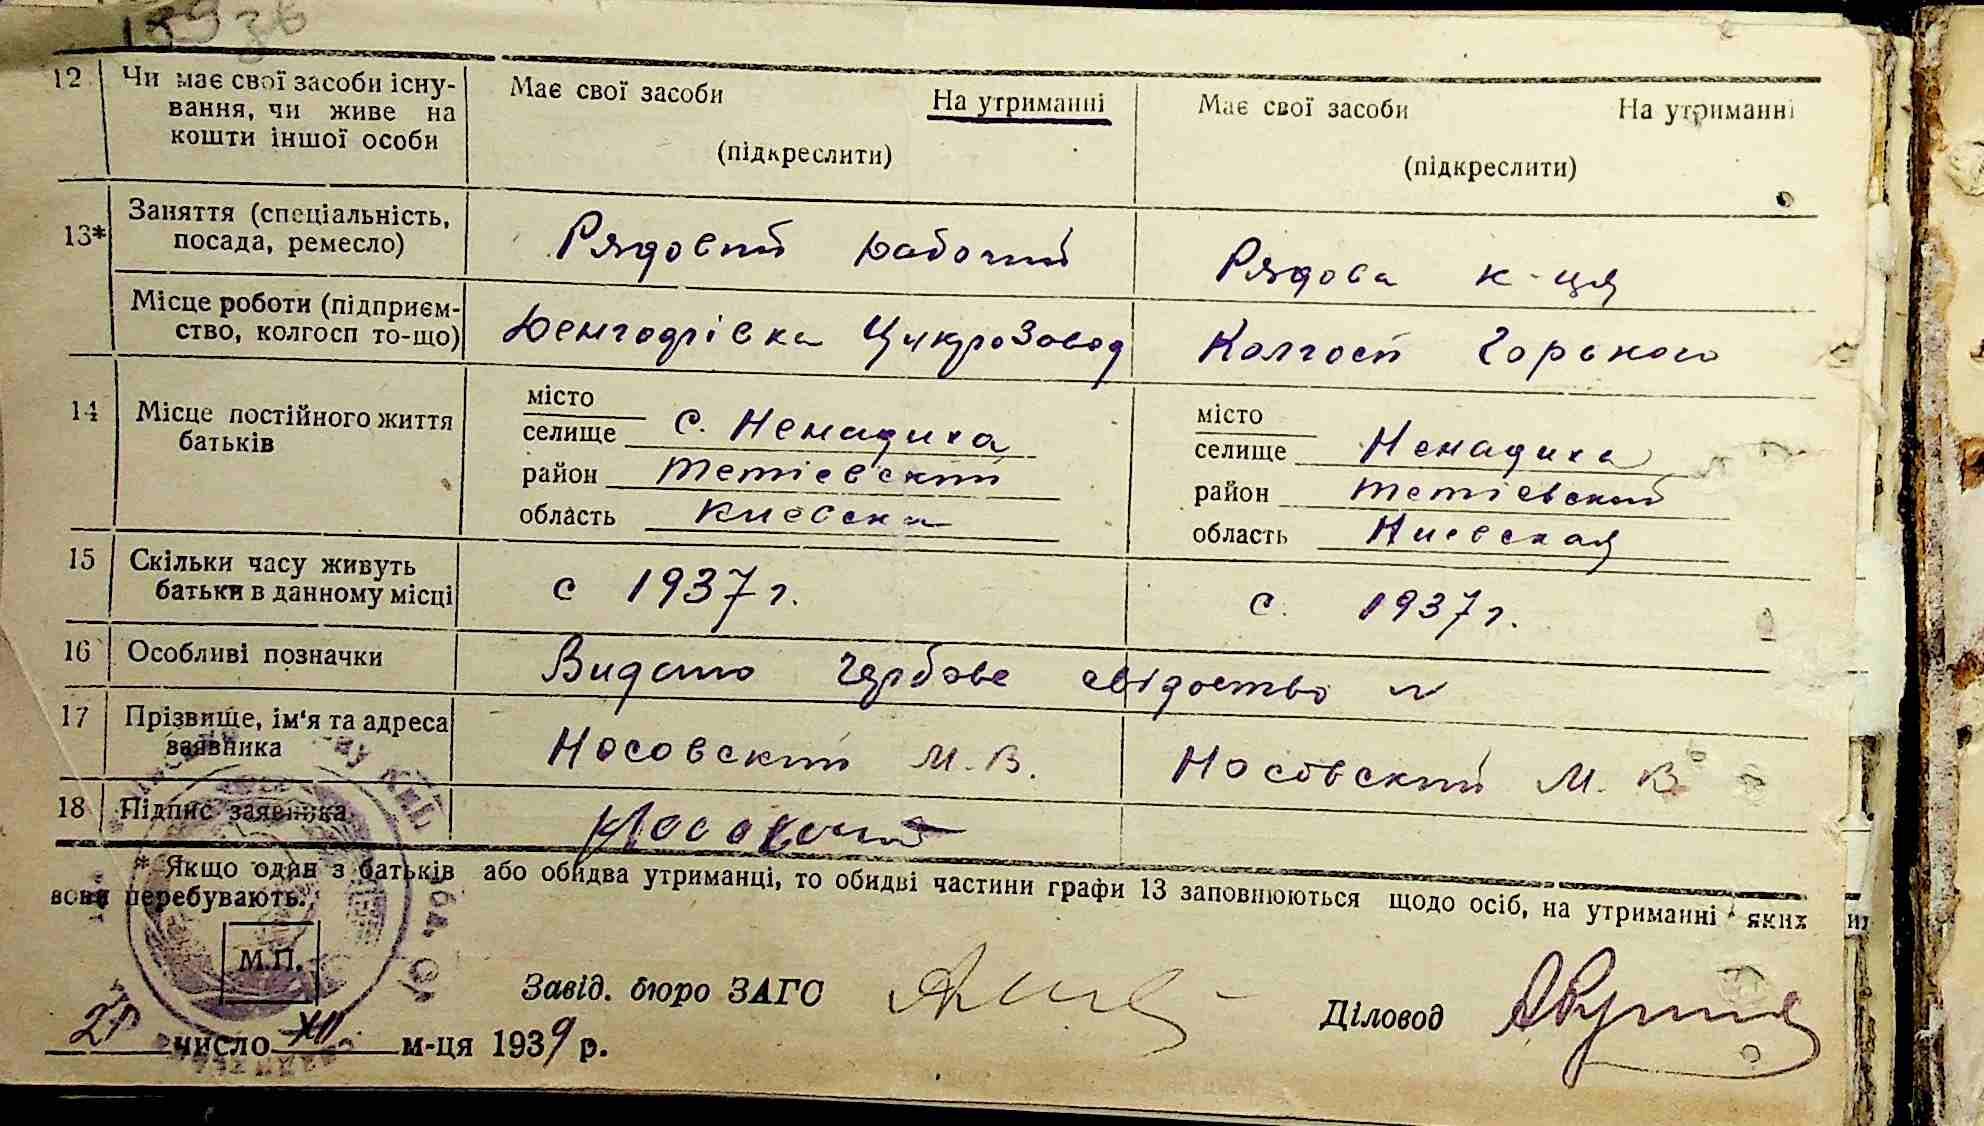 12 Чи має свої засоби існу-
вання, чи живе на
кошти іншої особи
Має свої засоби На утриманні
(підкреслити)
Має свої засоби На утриманні
(підкреслити)
13* Заняття (спеціальність,
посада, ремесло)
Рядовий рабочий
Рядова к-ця
Місце роботи (підприєм-
ство, колгосп то-що)
Денгофрівка Цукрозавод
Колгосп Горького
14 Місце постійного життя
батьків
місто
селище с. Ненадиха
район Тетієвский
область Киевска
місто
селище Ненадиха
район Тетієвский
область Киевская
15 Скільки часу живуть
батьки в данному місці
с 1937 г.
с. 1937 г.
16 Особливі позначки
Видано гербове свідоство №
17 Прізвище, ім'я та адреса
заявника
Носовский М. В.
Носовский М. В
18 Підпис заявника
Носовский
* Якщо один з батьків або обидва утриманці, то обидві частини графи 13 заповнюються щодо осіб, на утриманні яких
вони перебувають.
М.П.
Завід. бюро ЗАГС
Діловод
число XII м-ця 1939 р.